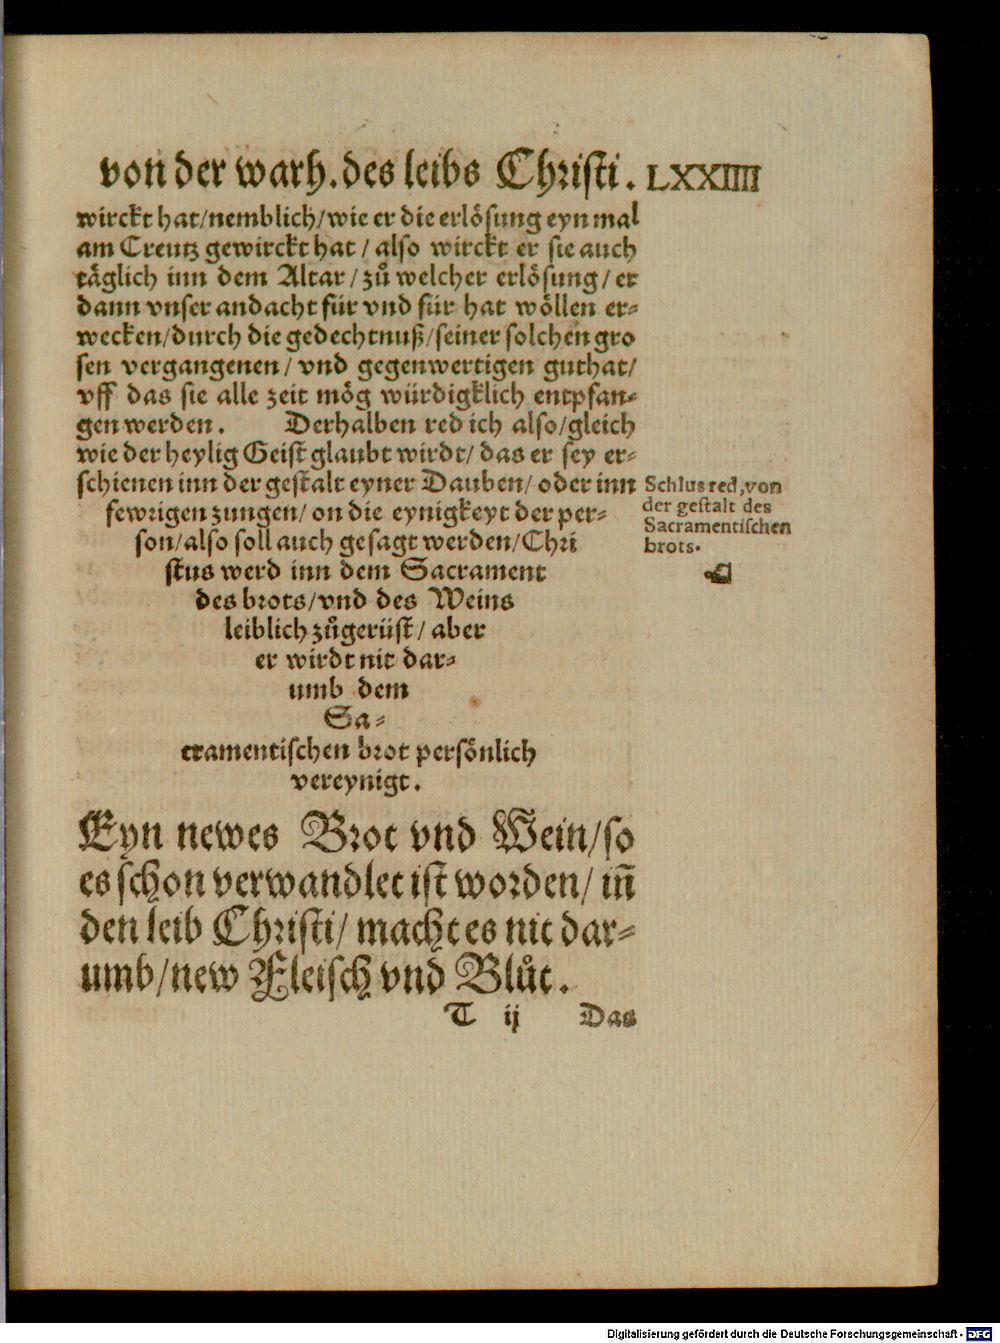 von der warh. des leibs Christi. LXXIIII
wirckt hat/nemblich/wie er die erlösung eyn mal
am Creutz gewirckt hat / also wirckt er sie auch
täglich inn dem Altar / zů welcher erlösung / er
dann vnser andacht für vnd für hat wöllen er⸗
wecken/durch die gedechtnuß/seiner solchen gro
sen vergangenen / vnd gegenwertigen guthat/
vff das sie alle zeit mög würdigklich entpfan⸗
gen werden. Derhalben red ich also/gleich
wie der heylig Geist glaubt wirdt/ das er sey er⸗
schienen inn der gestalt eyner Dauben/ oder inn
fewrigen zungen/ on die eynigkeyt der per⸗
son/also soll auch gesagt werden/Chri
stus werd inn dem Sacrament
des brots/vnd des Weins
leiblich zůgerüst/ aber
er wirdt nit dar⸗
umb dem
Sa⸗
cramentischen brot persönlich
vereynigt.
Schlus red, von
der gestalt des
Sacramentischen
brots.
Eyn newes Brot vnd Wein/so
es schon verwandlet ist worden/ iñ
den leib Christi/ macht es nit dar⸗
umb/new Fleisch vnd Blůt.
T ij Das
Digitalisierung gefördert durch die Deutsche Forschungsgemeinschaft - DFG